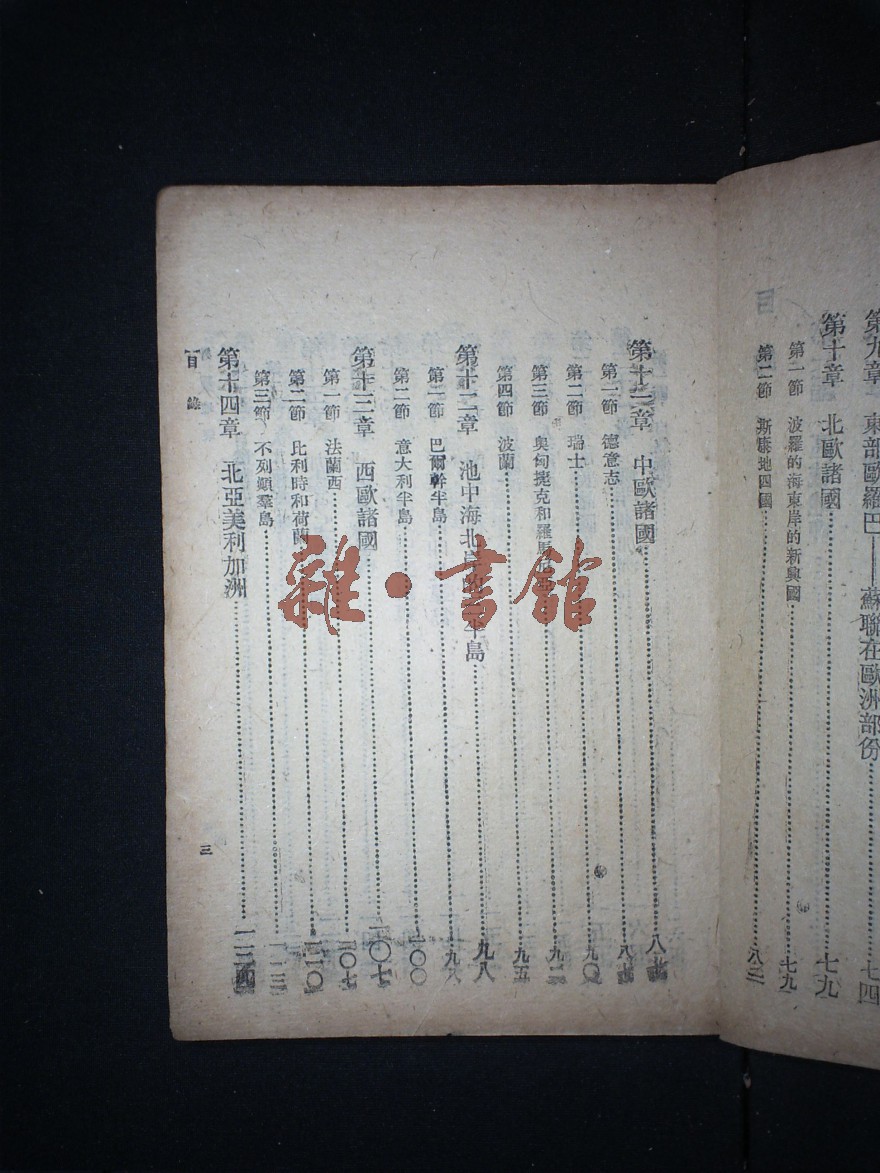 第九章 東部歐羅巴——蘇聯在歐洲部份……七四
第十章 北歐諸國……七九
第一節 波羅的海東岸的新興國……七九
第二節 斯康地四國……八二
第十一章 中歐諸國……八七
第一節 德意志……八七
第二節 瑞士……九〇
第三節 奧匈捷克和羅馬尼亞……九二
第四節 波蘭……九五
第十二章 池中海北岸的 半島……九八
第一節 巴爾幹半島……九八
第二節 意大利半島……一〇〇
第十三章 西歐諸國……一〇七
第一節 法蘭西……一〇七
第二節 比利時和荷蘭……一一〇
第三節 不列顛羣島……一一三
第十四章 北亞美利加洲……一二四
目錄
三
雜·書館